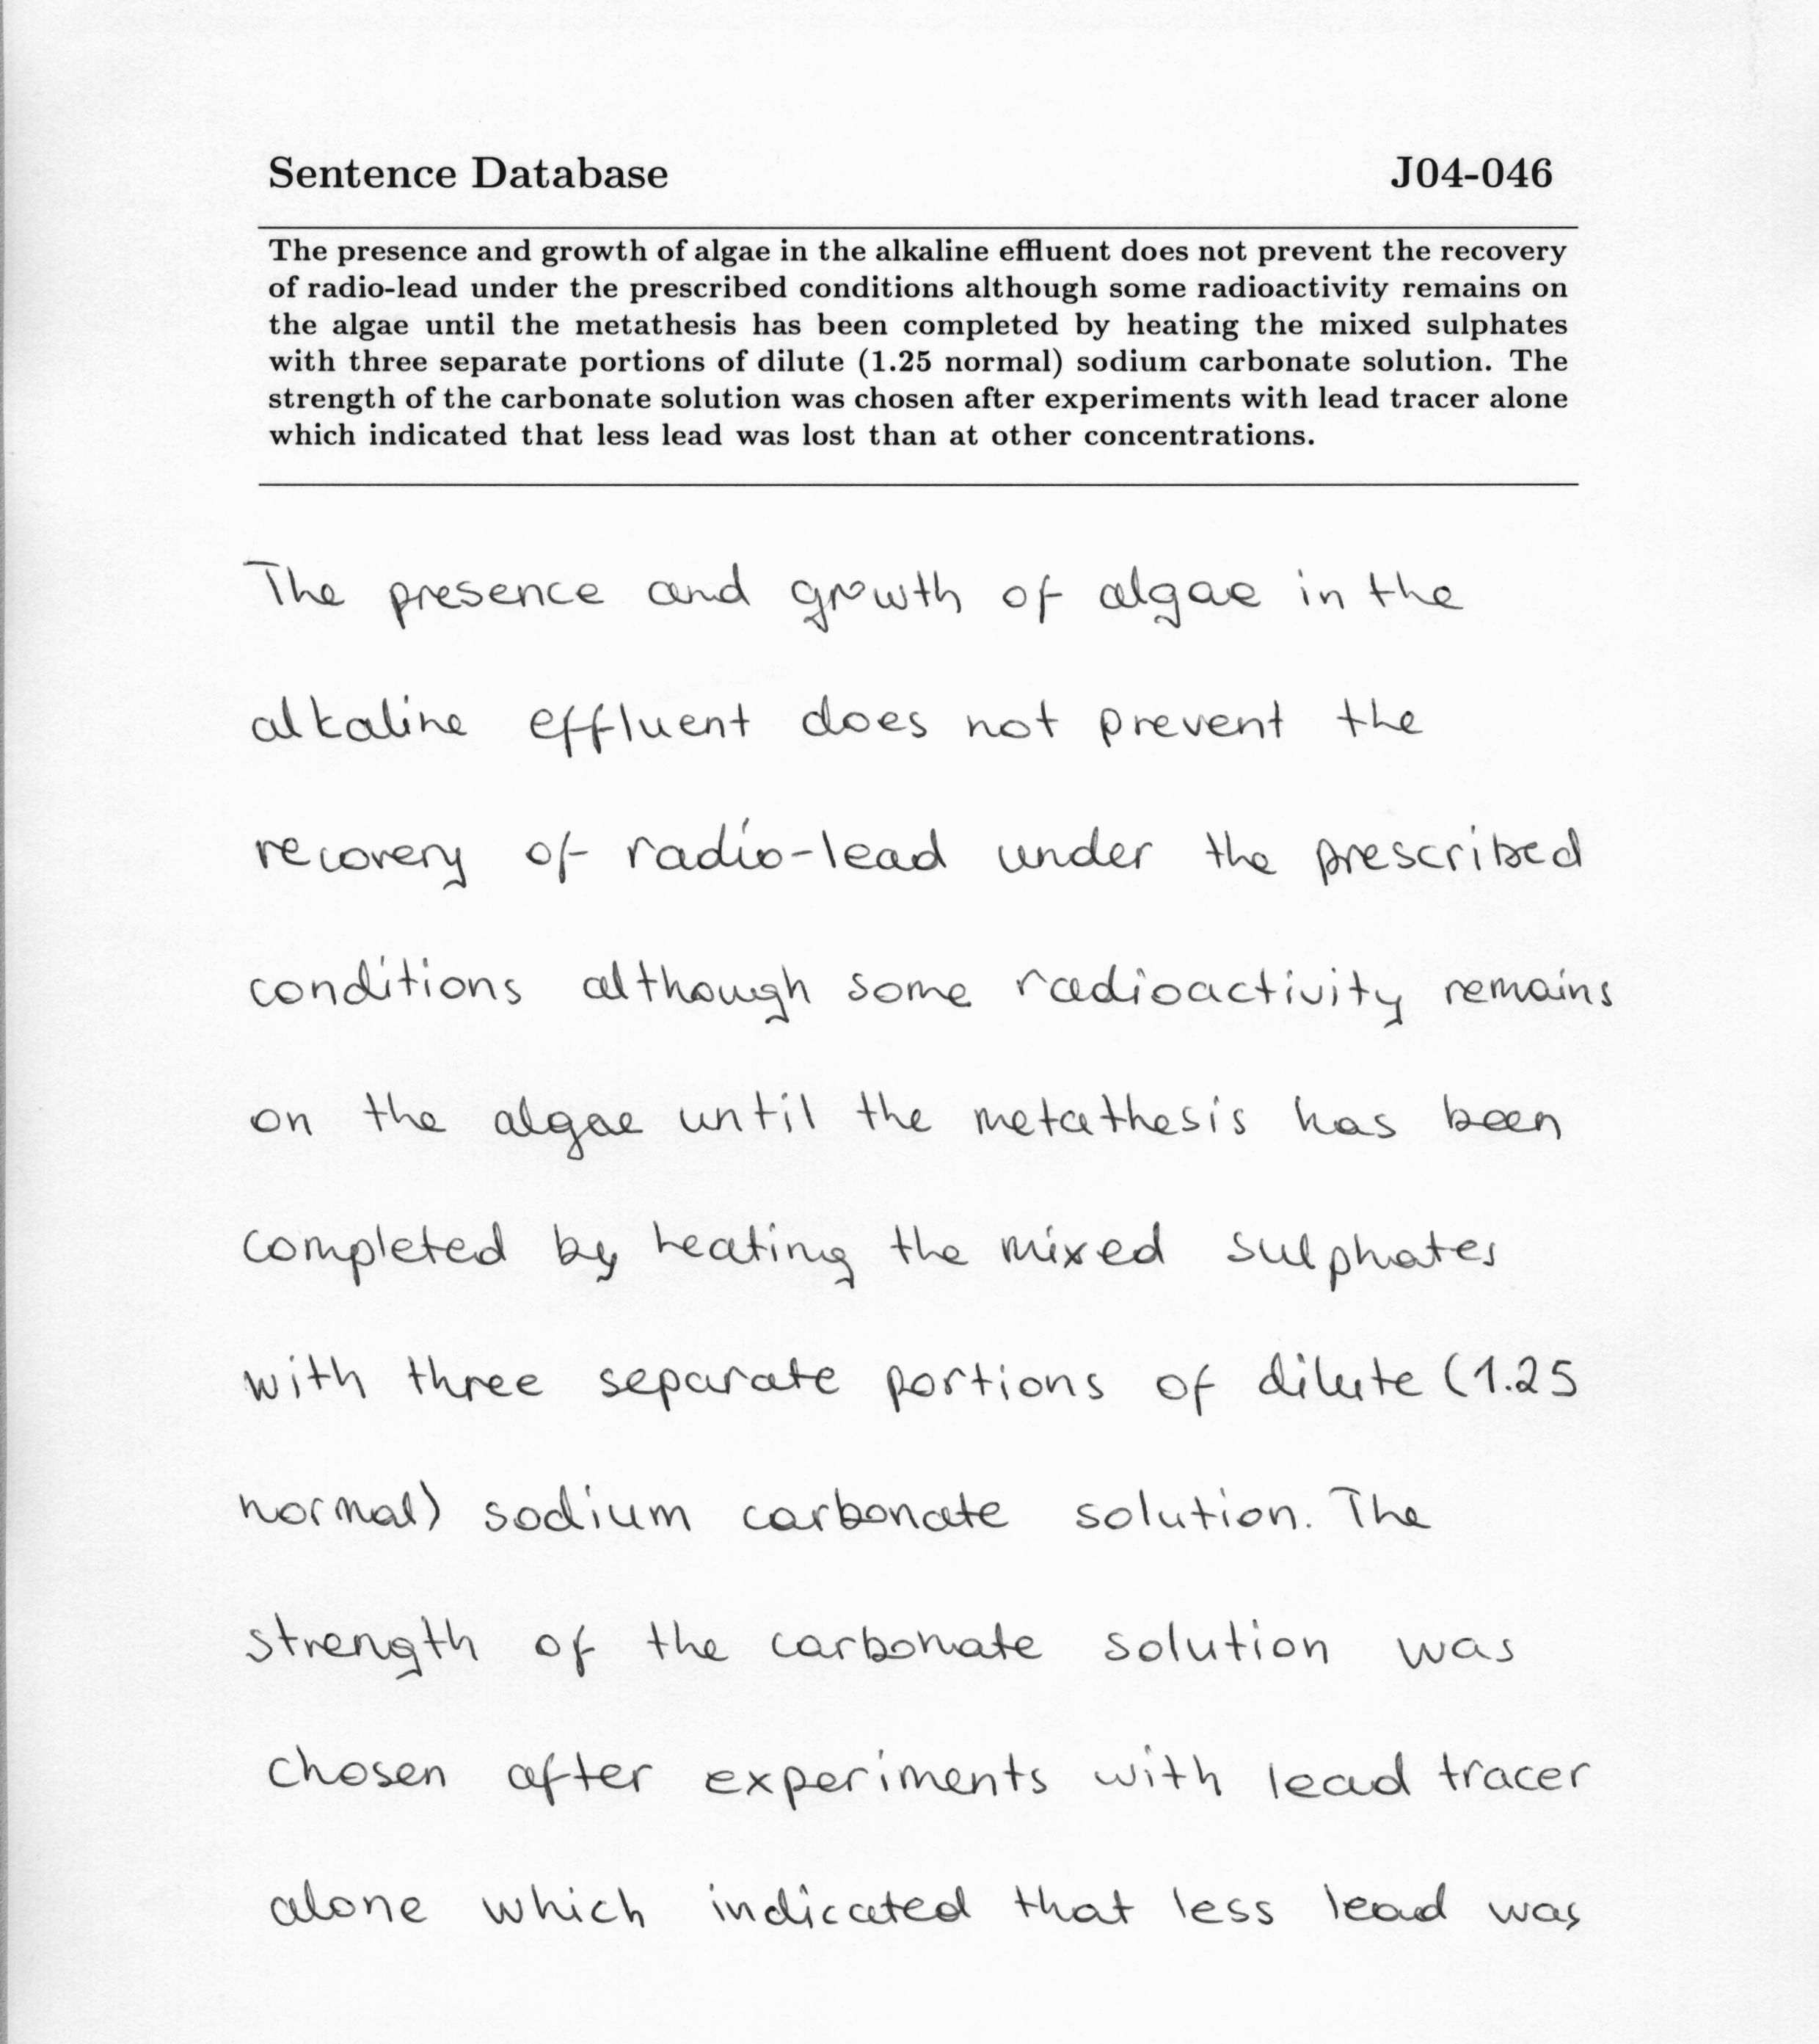 Sentence Database J04-046
The presence and growth of algae in the alkaline effluent does not prevent the recovery
of radio-lead under the prescribed conditions although some radioactivity remains on
the algae until the metathesis has been completed by heating the mixed sulphates
with three separate portions of dilute (1.25 normal) sodium carbonate solution. The
strength of the carbonate solution was chosen after experiments with lead tracer alone
which indicated that less lead was lost than at other concentrations.
The presence and growth of algae in the
alkaline effluent does not prevent the
recovery of radio-lead under the prescribed
conditions although some radioactivity remains
on the algae until the metathesis has been
completed by heating the mixed sulphates
with three separate portions of dilute (1.25
normal) sodium carbonate solution. The
strength of the carbonate solution was
chosen after experiments with lead tracer
alone which indicated that less lead was